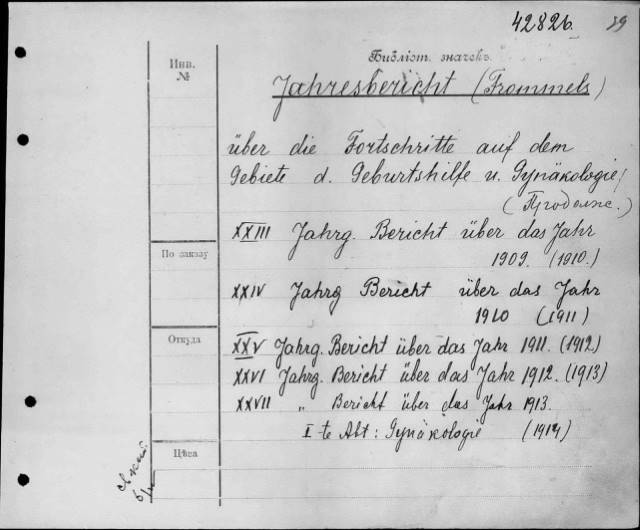 42826. 39
Инв.
№
Бібліот. значекъ
Jahresbericht (Frommels)
über die Fortschritte auf dem
Gebiete d. Geburtshilfe u. Gynäkologie/
(Продолж.)
XXIII Jahrg. Bericht über das Jahr
1909. (1910.)
По заказу
XXIV Jahrg Bericht über das Jahr
1910 (1911)
Откуда
XXV Jahrg. Bericht über das Jahr 1911. (1912)
XXVI Jahrg. Bericht über das Jahr 1912. (1913)
XXVII „ Bericht über das Jahr 1913.
I-te Abt: Gynäkologie (1914)
Цѣна